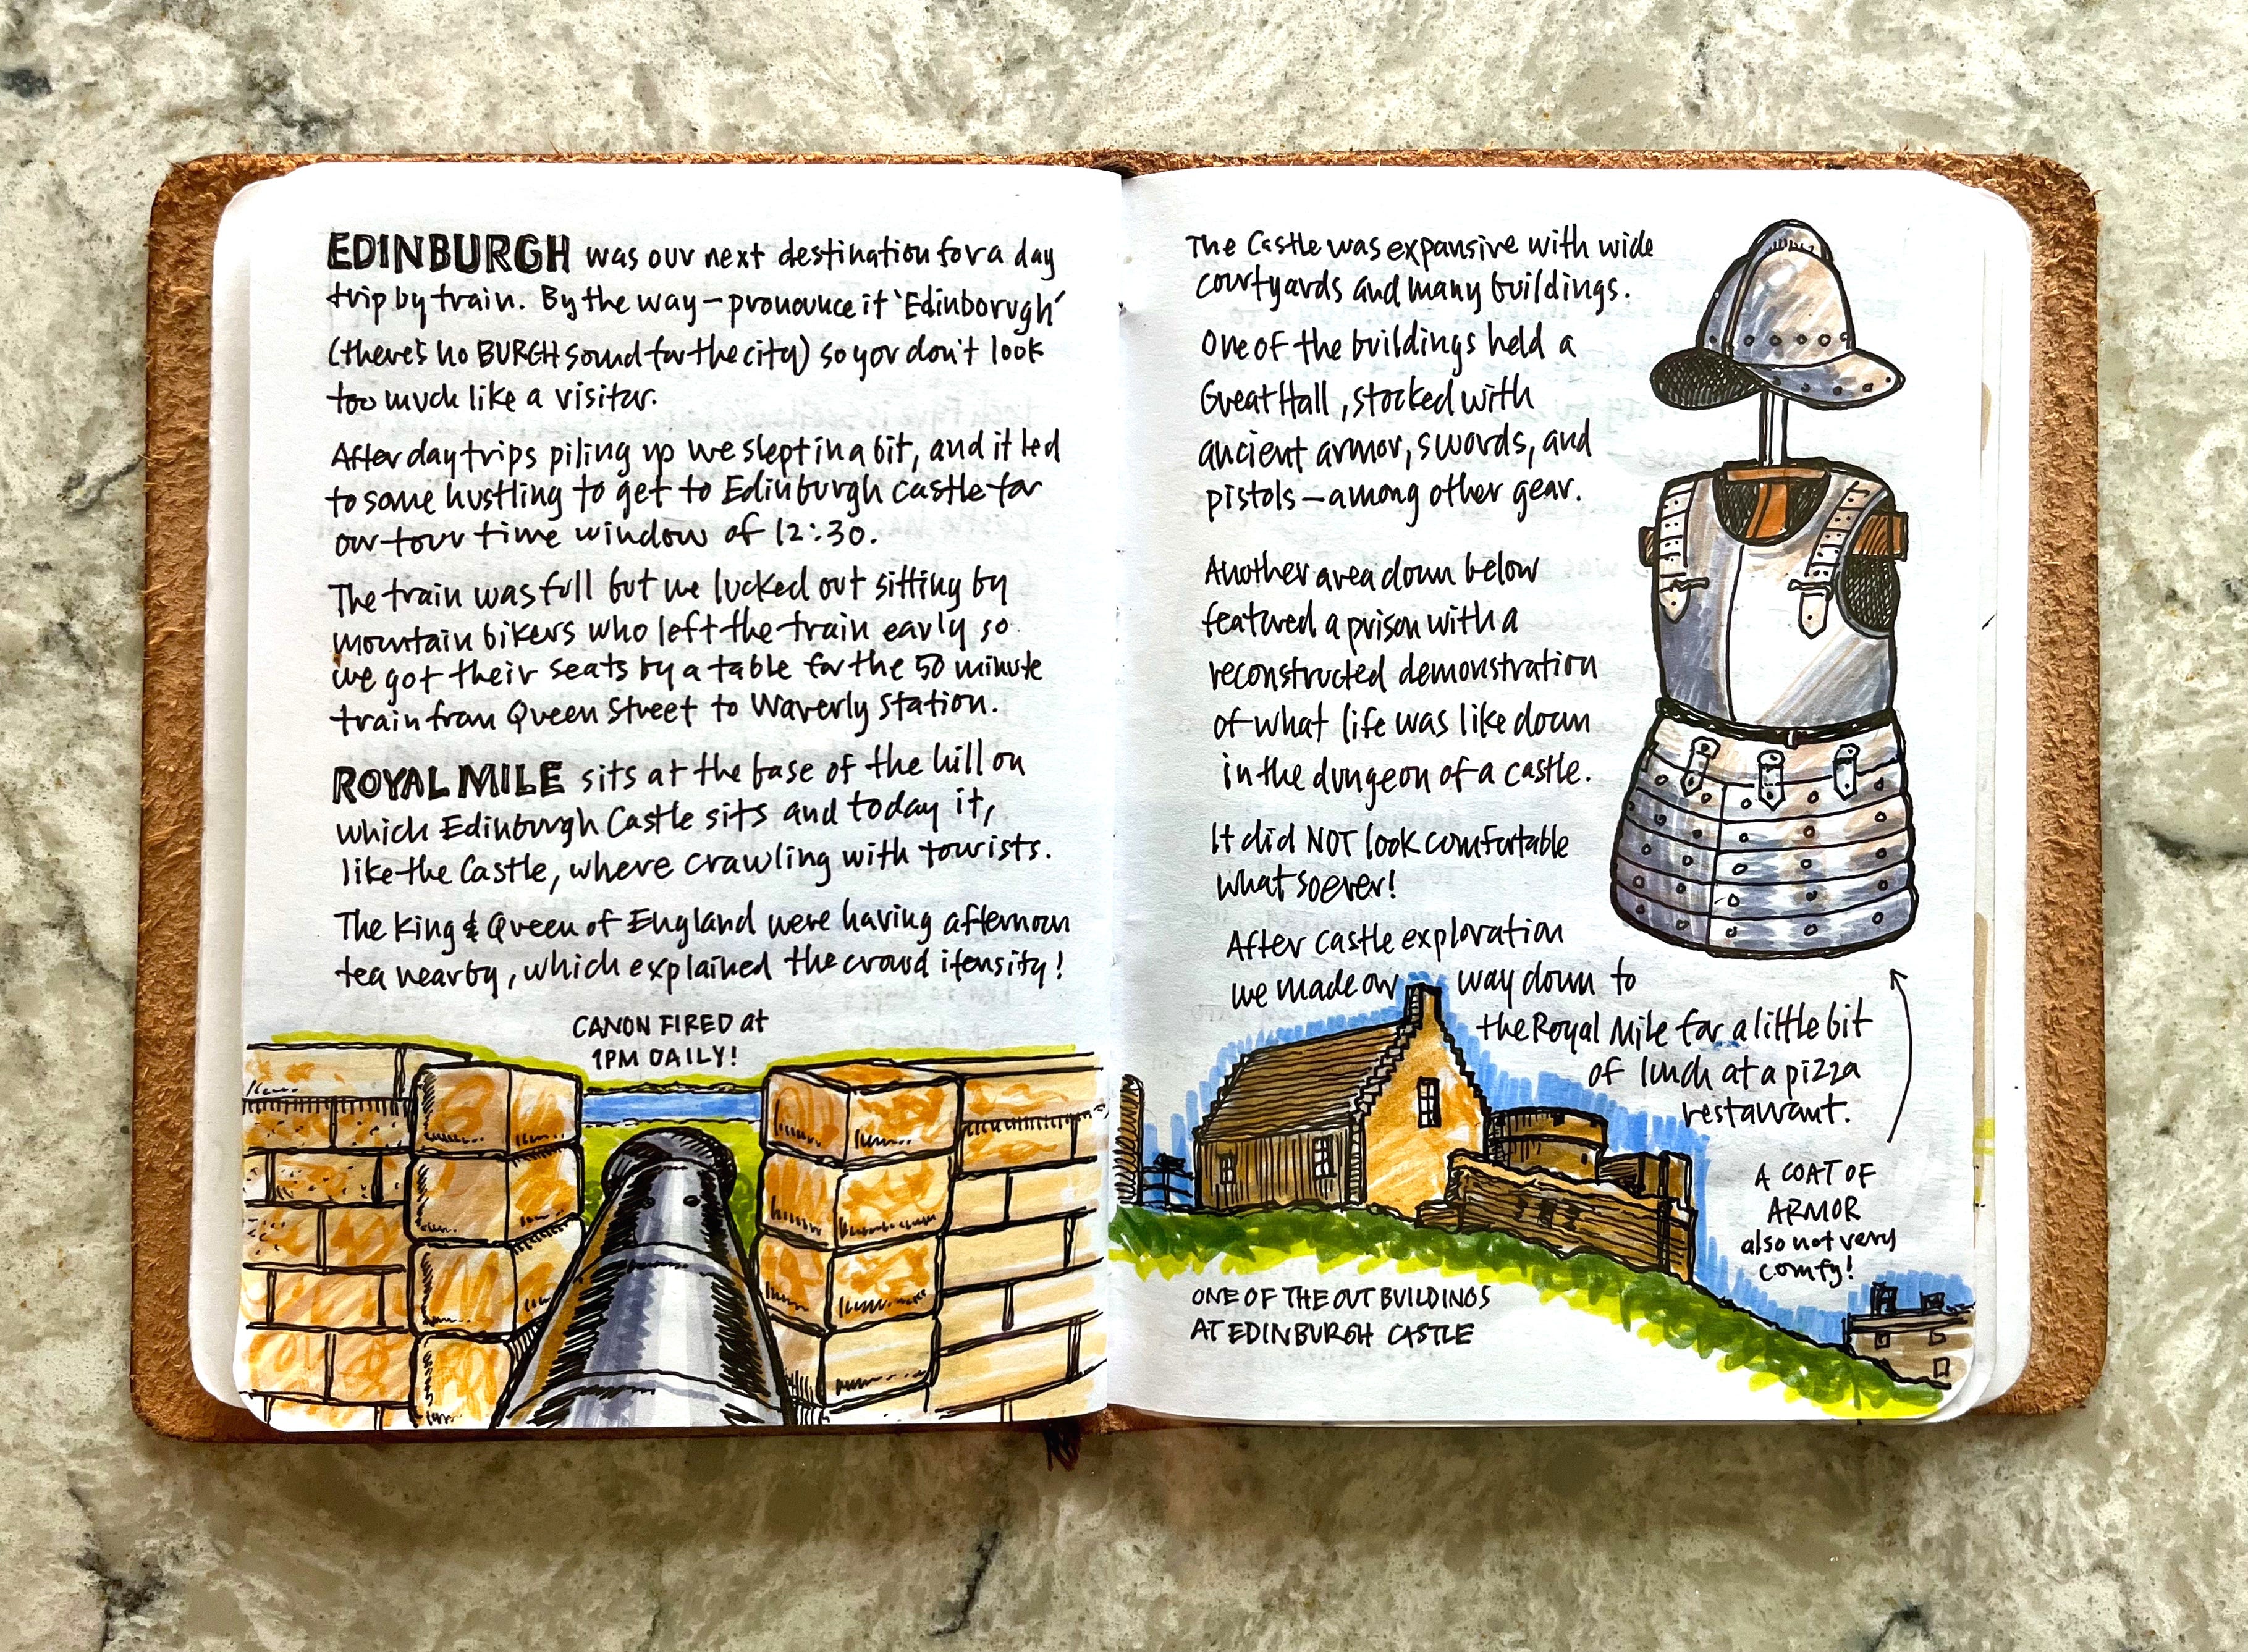 EDINBURGH was our next destination for a day
trip by train. By the way – pronounce it 'Edinborugh'
(there's no BURGH sound for the city) so you don't look
too much like a visitor.
After day trips piling up we slept in a bit, and it led
to some hustling to get to Edinburgh castle for
our tour time window of 12:30.
The train was full but we lucked out sitting by
mountain bikers who left the train early so
we got their seats by a table for the 50 minute
train from Queen Street to Waverly Station.
ROYAL MILE sits at the base of the hill on
which Edinburgh Castle sits and today it,
like the Castle, where crawling with tourists.
The King & Queen of England were having afternoon
tea nearby, which explained the crowd itensity!
CANON FIRED at
1PM DAILY!
The Castle was expansive with wide
courtyards and many buildings.
One of the buildings held a
Great Hall, stocked with
ancient armor, swords, and
pistols – among other gear.
Another area down below
featured a prison with a
reconstructed demonstration
of what life was like down
in the dungeon of a castle.
It did NOT look comfortable
whatsoever!
After castle exploration
we made our way down to
the Royal Mile for a little bit
of lunch at a pizza
restaurant.
A COAT OF
ARMOR
also not very
comfy!
ONE OF THE OUT BUILDINGS
AT EDINBURGH CASTLE